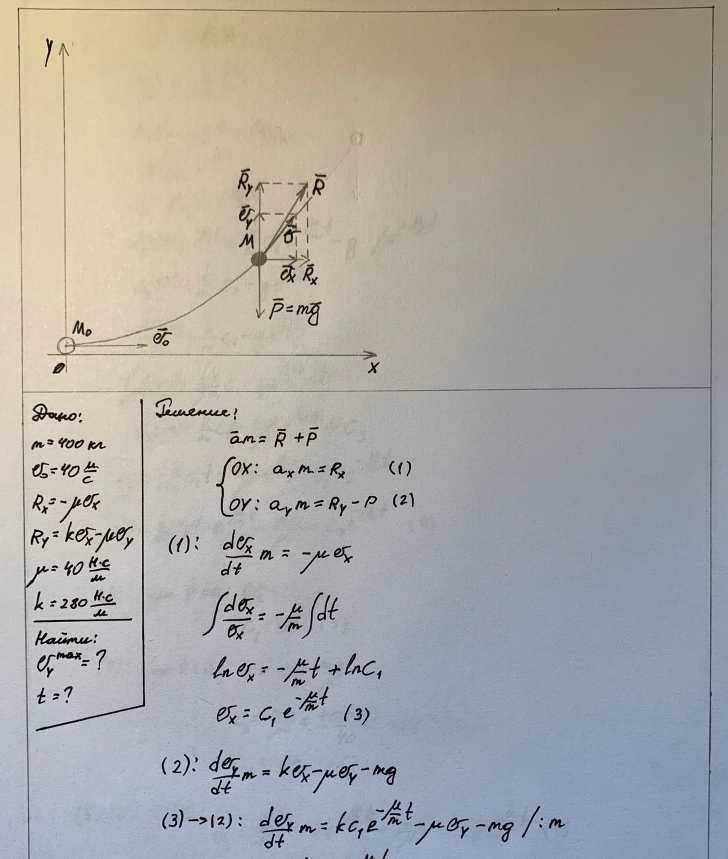 y
R̄y
R̄
v̄y
M
v̄
v̄x R̄x
P̄=mḡ
M₀
v̄₀
O
x
Дано:
m=400 кг
v₀=40 м/с
Rx=-μvx
Ry=kvx-μvy
μ=40 Н·с/м
k=280 Н·с/м
Найти:
vy^max=?
t=?
Решение:
ām=R̄+P̄
{OX: axm=Rx (1)
OY: aym=Ry-P (2)
(1): dvx/dt m = -μvx
∫dvx/vx = -μ/m ∫dt
ln vx = -μ/m t + lnC₁
vx = C₁e^(-μ/m t) (3)
(2): dvy/dt m = kvx-μvy-mg
(3)→(2): dvy/dt m = kC₁e^(-μ/m t) - μvy - mg /:m